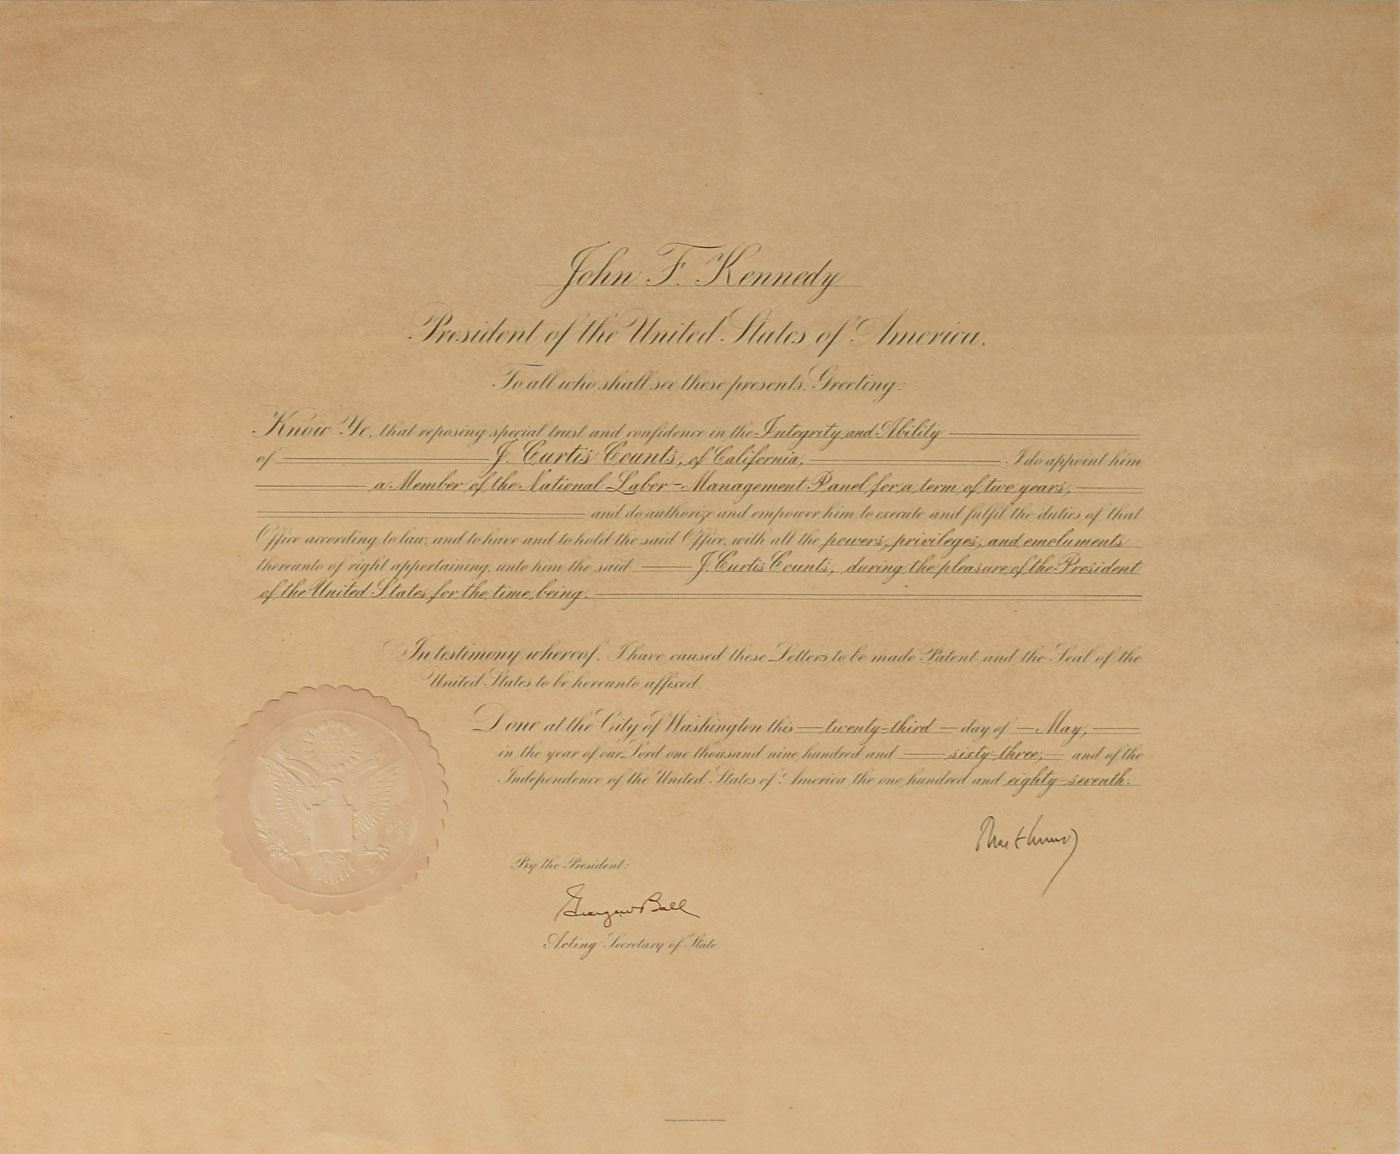 John F. Kennedy
President of the United States of America.
To all who shall see these presents, Greeting:
Know Ye, that reposing special trust and confidence in the Integrity and Ability
of J. Curtis Counts, of California, I do appoint him
a Member of the National Labor-Management Panel for a term of two years,
and do authorize and empower him to execute and fulfil the duties of that
Office according to law, and to have and to hold the said Office, with all the powers, privileges, and emoluments
thereunto of right appertaining, unto him the said J. Curtis Counts, during the pleasure of the President
of the United States for the time being.
In testimony whereof, I have caused these Letters to be made Patent and the Seal of the
United States to be hereunto affixed.
Done at the City of Washington this twenty-third day of May,
in the year of our Lord one thousand nine hundred and sixty-three, and of the
Independence of the United States of America the one hundred and eighty-seventh.
By the President:
George W Ball
Acting Secretary of State.